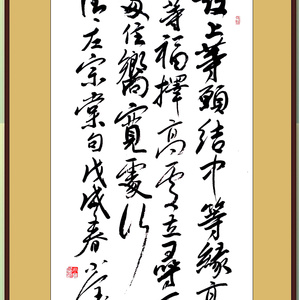 發上等願結中等緣享
等福擇高處立尋平
處住嚮寬處行
清左宗棠句戊戌春小